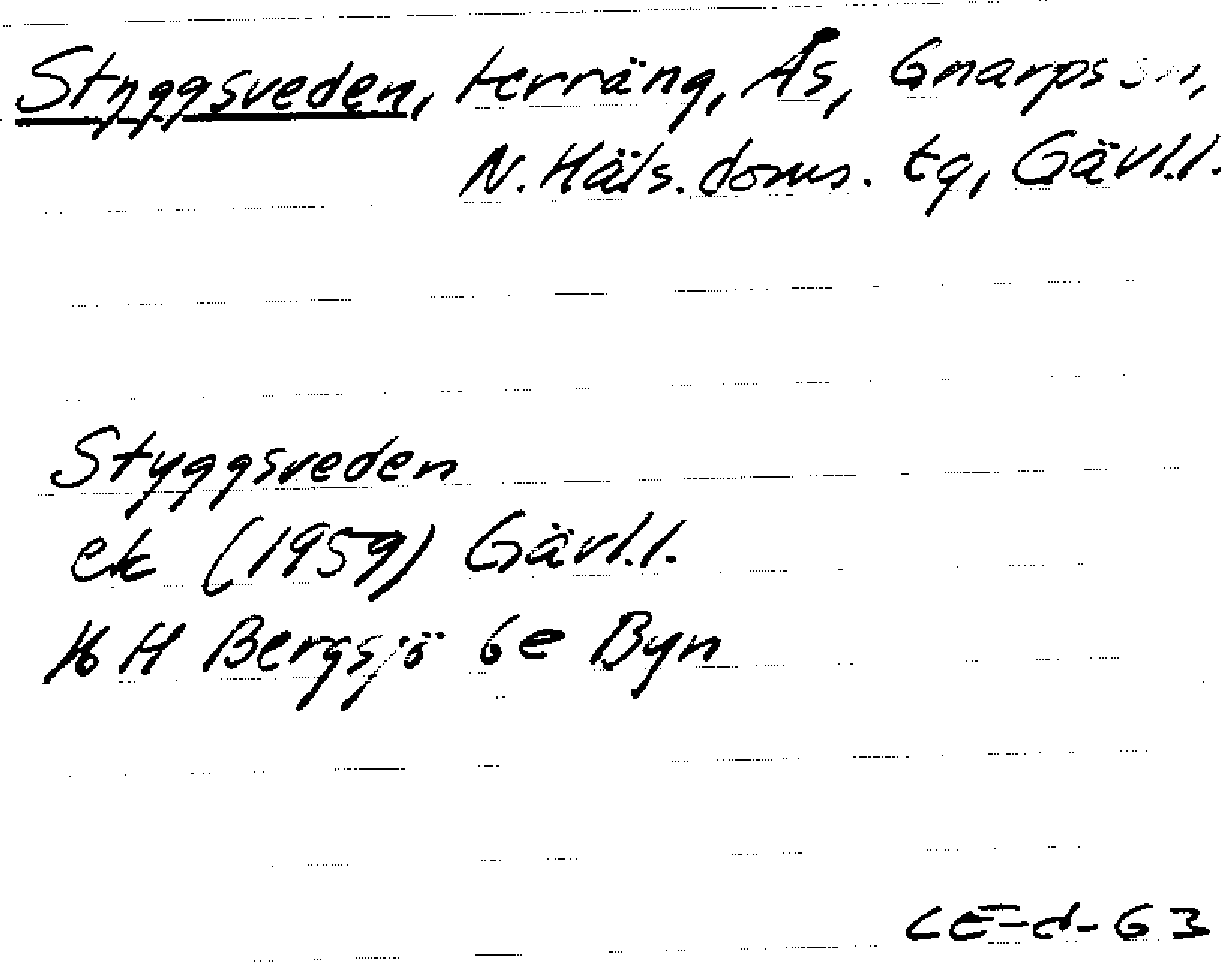 Styggsveden, terräng, Ås, Gnarps sn,
N. Häls. doms. tg, Gävl.l.
Styggsveden
ek (1959) Gävl.l.
16 H Bergsjö 6e Byn
CE-d-63